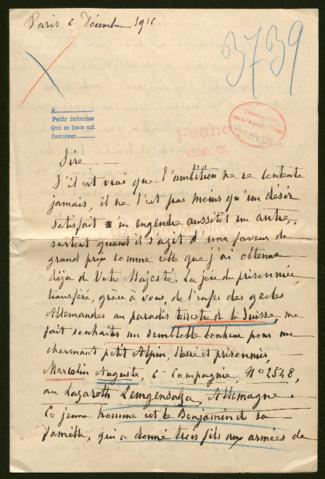 Paris 6 Décembre 1916
3739
A
Pedir informes
Que se hace así
Devolver
France
Sire
S'il est vrai que l'ambition ne se contente
jamais, il ne l'est pas moins qu'un désir
satisfait en engendre aussitôt un autre,
surtout quand il s'agit d'une faveur de
grand prix comme celle que j'ai obtenue
déja de Votre Majesté. La joie du prisonnier,
transféré, grâce à vous, de l'enfer des geôles
Allemandes au paradis terrestre de la Suisse me
fait souhaiter un semblable bonheur pour un
charmant petit Alpin, blessé et prisonnier,
Auguste, 6e Compagnie, No 2548,
au Lazareth Allemagne.
Ce jeune homme est le Benjamin de sa
famille, qui a donné trois fils aux armées de